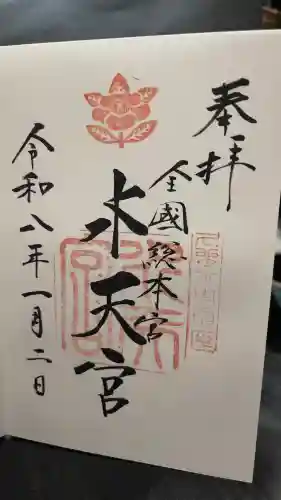 奉拝
全國総本宮
水天宮
令和八年一月二日